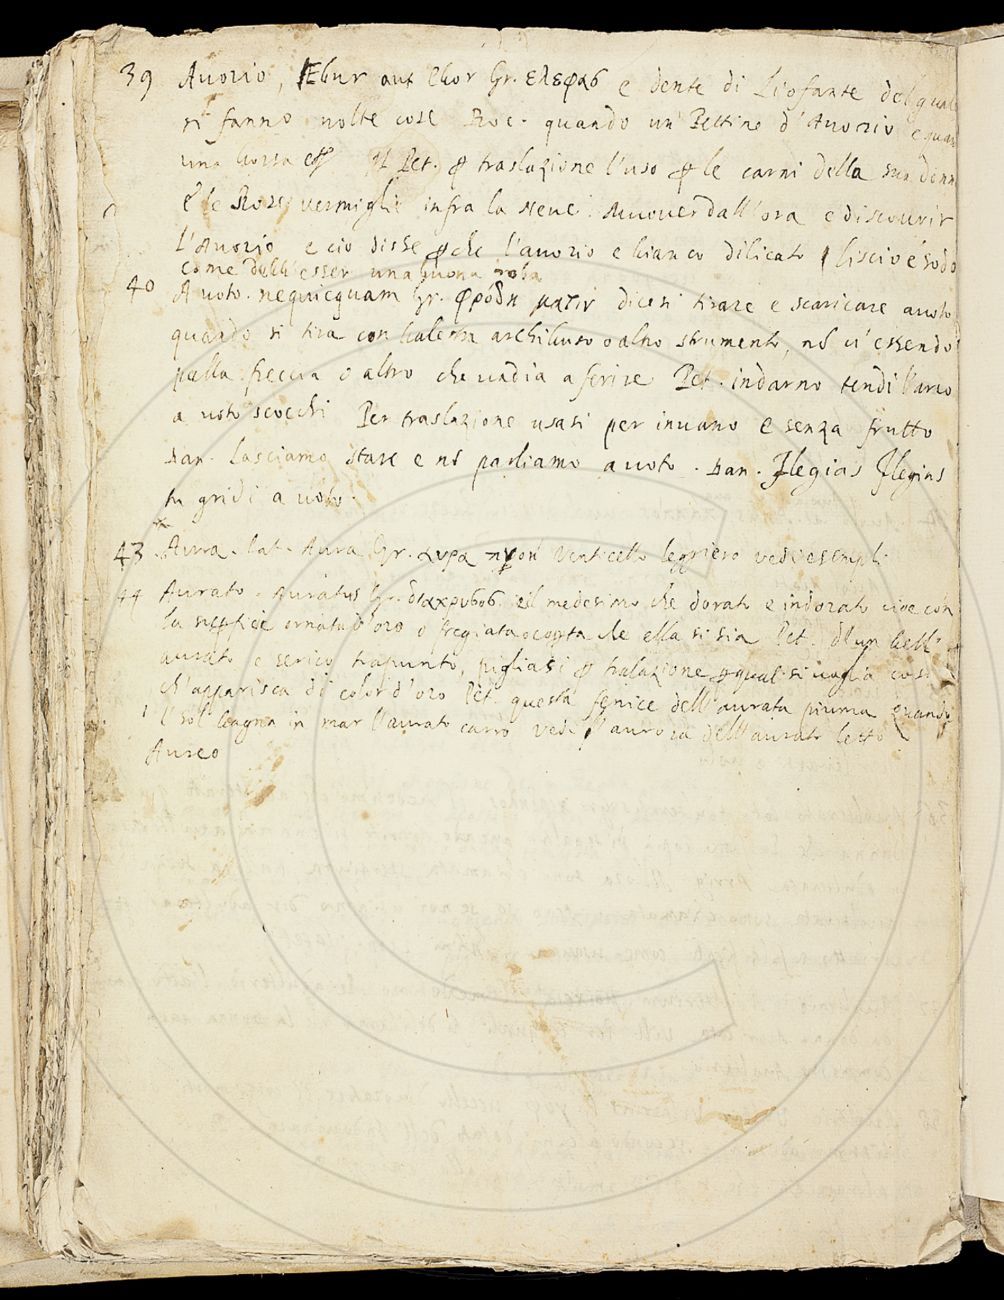 39 Auorio, Ebur aut Ebor Gr. ελεφας e dente di Liofante del qual
si fanno molte cose Boc. quando un Pettine d'Auorio e quan
una borsa etc Il Pet. p traslazione l'uso p le carni della sua donn
E le Rose vermiglie infra la Neue Muouer dall'ora e discourir
L'Auorio e cio disse pche l'auorio e bianco dilicato liscio e sodo
come debb'esser una buona roba
40 Auoto. nequicquam Gr. dicesi tirare e scaricare auoto
quando si tira con balestra archibuso o altro strumento, no ui essendo
palla freccia o altro che uadia a ferire Pet. indarno tendi l'arco
a uoto scocchi Per traslazione usasi per inuano e senza frutto
Dan. lasciamo stare e no parliamo auoto. Dan. Flegias Flegias
tu gridi a uoto.
43 Aura. Lat. Aura Gr. αυρα Venticello leggiero vedi essempli
44 Aurato. Auratus Gr. διαχρυσος. e il medesimo che dorato e indorato cioe con
la supficie ornata d'oro o fregiata o coperta che ella si sia Pet. D'un bell'
aurato e serico trapunto, pigliasi p tralazione p qual si uoglia cosa
ch'apparisca di color d'oro Pet. questa fenice dell'aurata piuma quando
l'sol bagna in mar l'aurato carro vedi l'aurora dell'aurato letto
Aureo